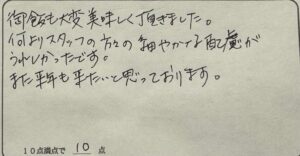 御飯も大変美味しく頂きました。
何よりスタッフの方々の細やかな配慮が
うれしかったです。
また来年も来たいと思っております。
10点満点で 10 点